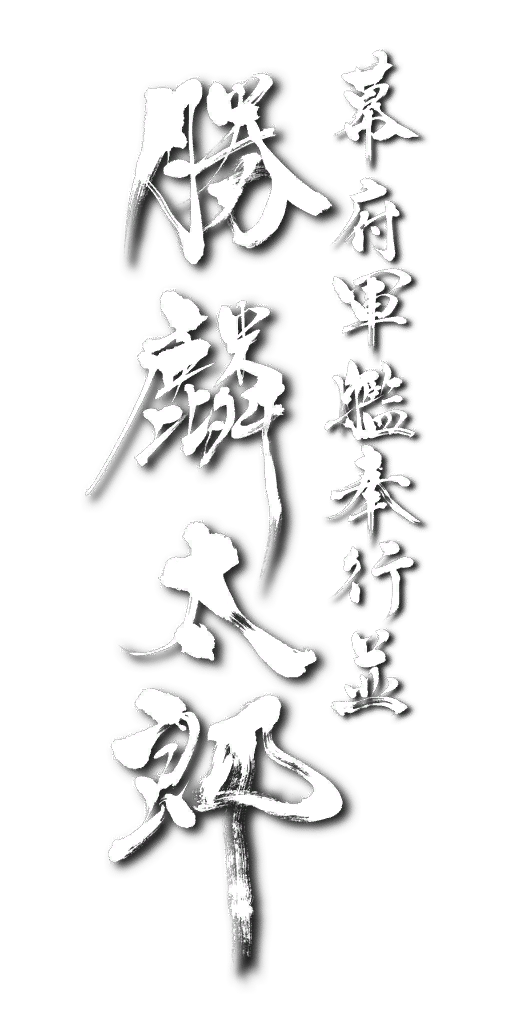 幕府軍艦奉行並
勝麟太郎